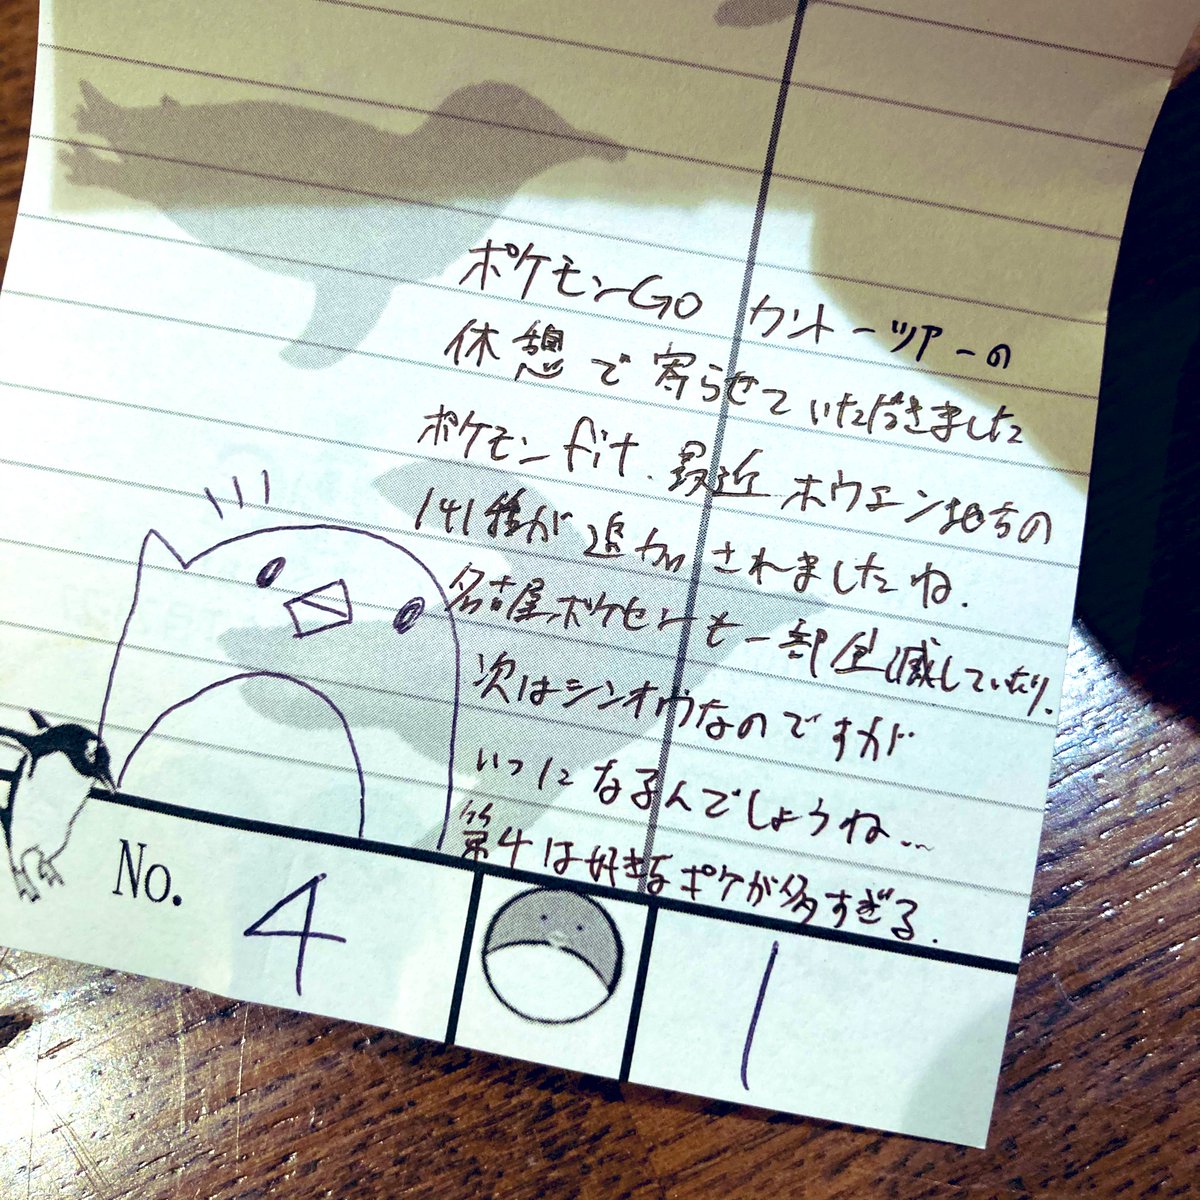 ポケモンGO カントーツアーの
休憩で寄らせていただきました
ポケモンfit、最近ホウエン地方の
141種が追加されましたね.
名古屋ポケセンも一部全滅していたり.
次はシンオウなのですが
いつになるんでしょうね…
第4は好きなポケが多すぎる.
No. 4 1